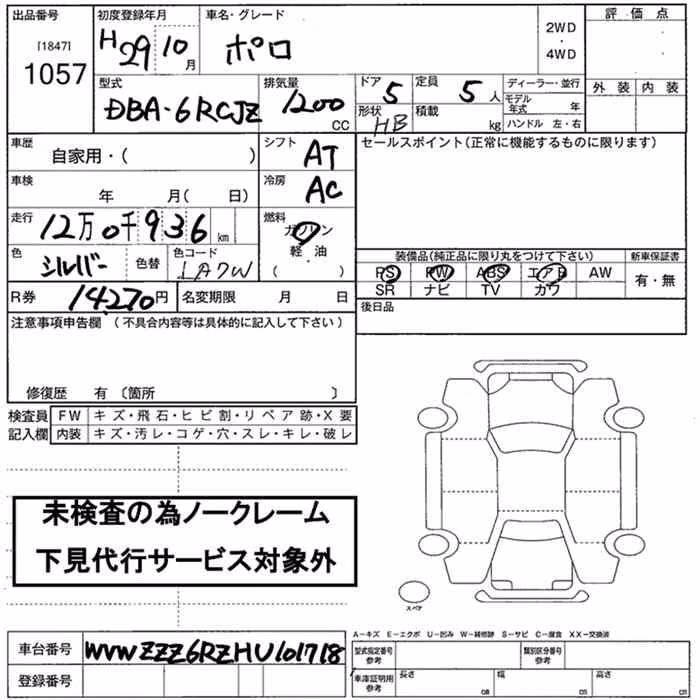 出品番号
[1847]
1057
初度登録年月
H29 10月
車名・グレード
ポロ
2WD
・
4WD
評価点
外装 内装
型式
DBA-6RCJZ
排気量
1200
CC
ドア
5
定員
5人
形状
HB
積載
kg
ディーラー・並行
モデル年式 年
ハンドル 左・右
車歴
自家用・( )
シフト
AT
車検
年 月( 日)
冷房
AC
走行
12万0千936km
燃料
ガソリン
軽・油
( )
色
シルバー
色替
色コード
LA7W
R券
14,270円
名変期限 月 日
セールスポイント(正常に機能するものに限ります)
装備品(純正品に限り丸をつけて下さい)
新車保証書
PS PW ABS エアB AW
有・無
SR ナビ TV カワ
後日品
注意事項申告欄 (不具合内容等は具体的に記入して下さい)
修復歴 有 〔箇所 〕
検査員
記入欄
FW キズ・飛石・ヒビ割・リペア跡・X要
内装 キズ・汚レ・コゲ・穴・スレ・キレ・破レ
未検査の為ノークレーム
下見代行サービス対象外
スペア
A-キズ E-エクボ U-凹み W-補修跡 S-サビ C-腐食 XX-交換済
車台番号
WVWZZZ6RZHU101718
登録番号
型式指定番号
参考
類別区分番号
参考
車庫証明用
参考
長さ cm
幅 cm
高さ cm